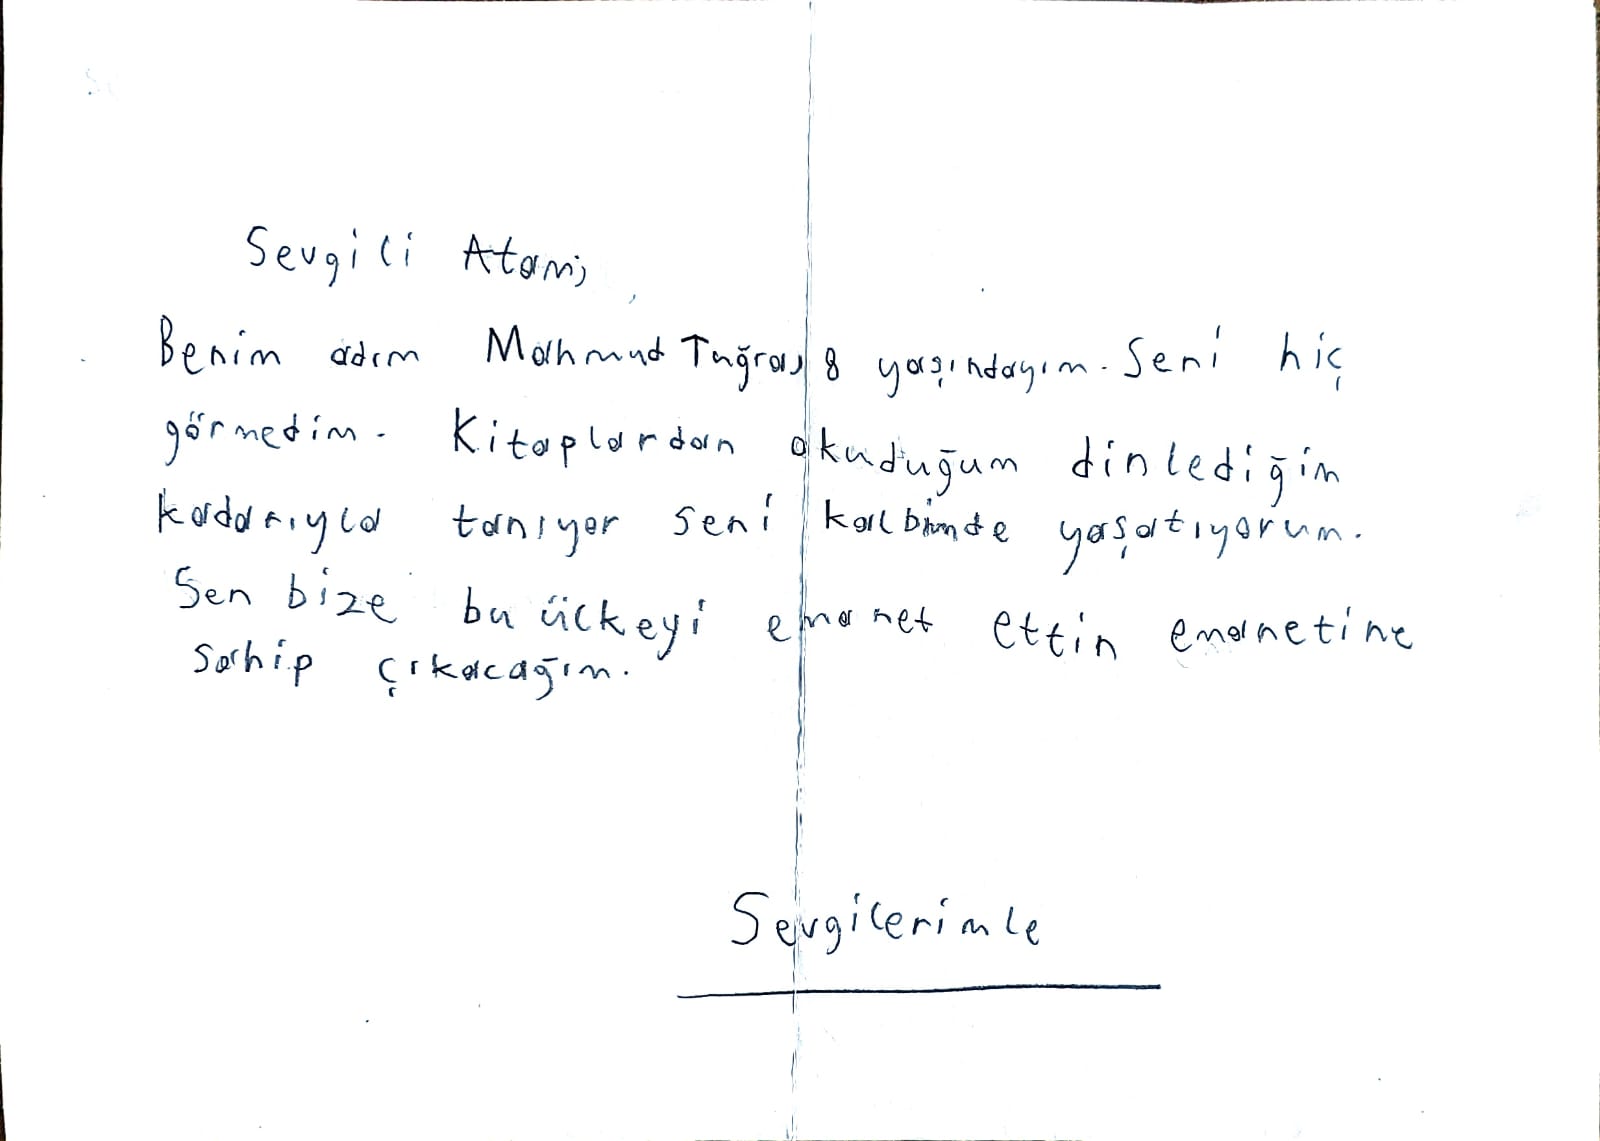 Sevgili Atam;
Benim adım Mahmud Tuğra, 8 yaşındayım. Seni hiç
görmedim. Kitaplardan okuduğum dinlediğim
kadarıyla tanıyor seni kalbimde yaşatıyorum.
Sen bize bu ülkeyi emanet ettin emanetine
sahip çıkacağım.
Sevgilerimle